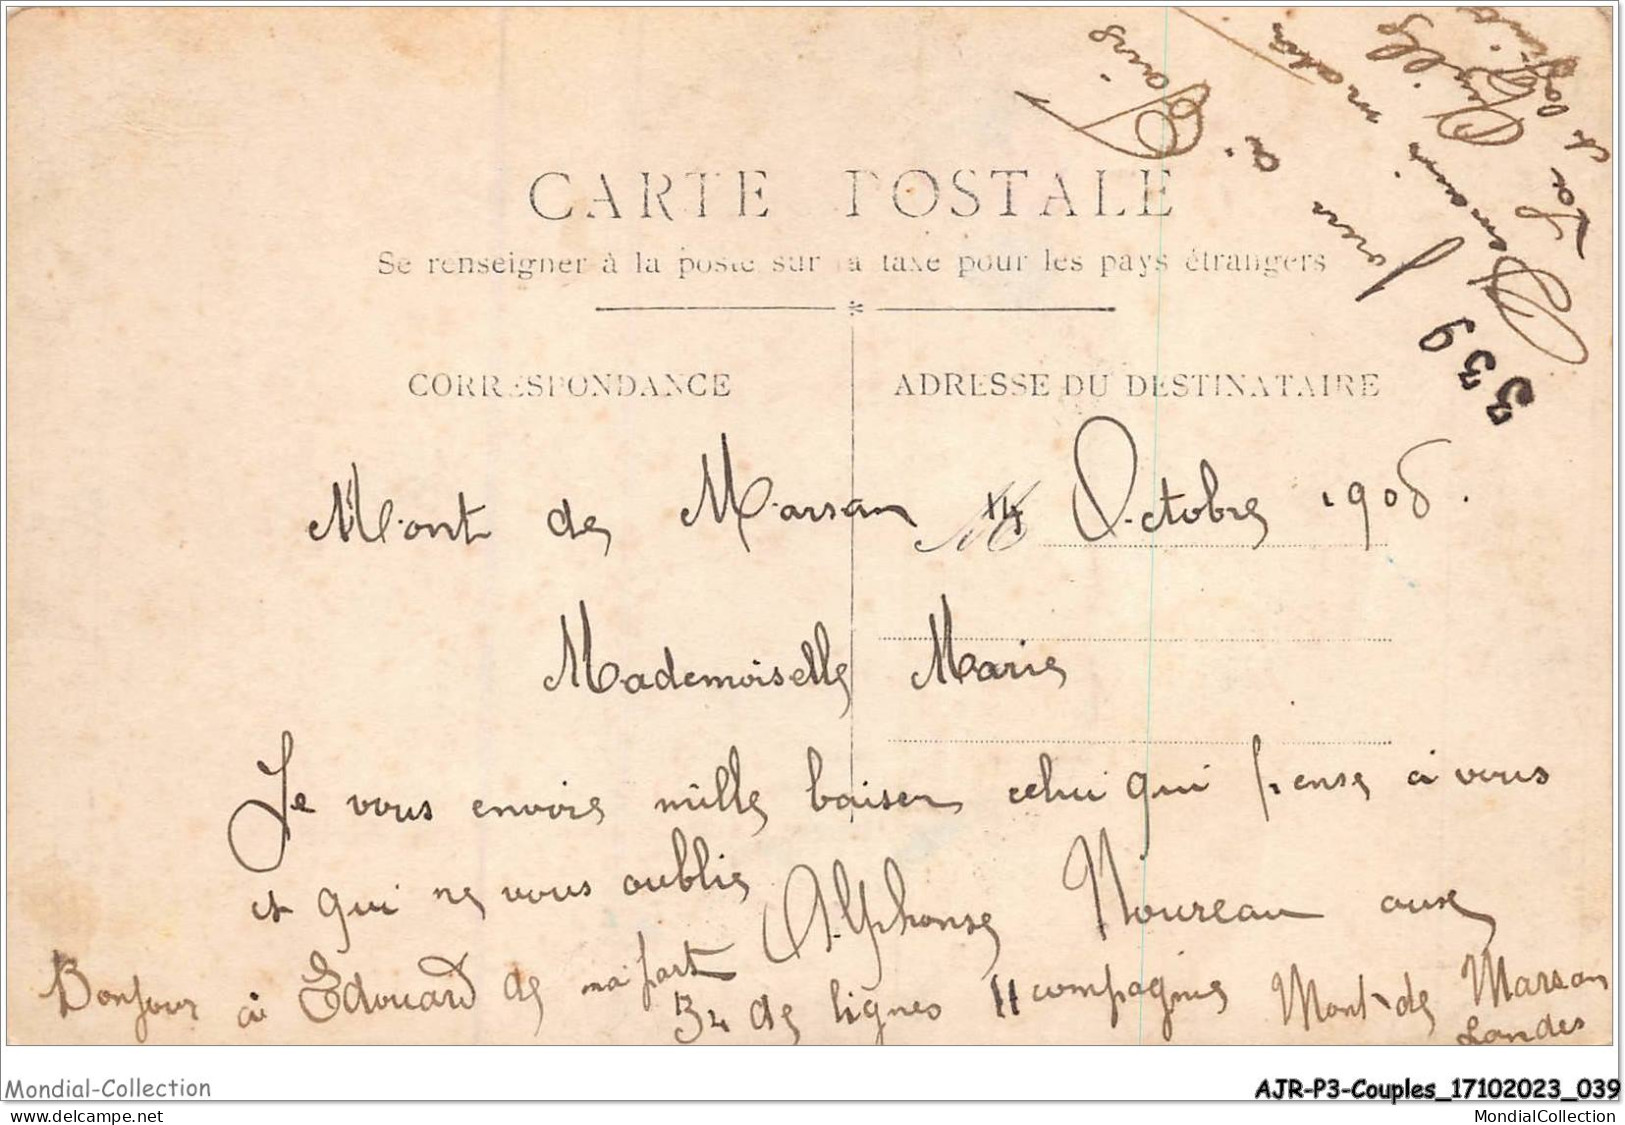 CARTE POSTALE
Se renseigner à la poste sur la taxe pour les pays étrangers
CORRESPONDANCE
ADRESSE DU DESTINATAIRE
339
Demain matin
pour
à
Paris
Mont de Marsan 14 Octobre 1906.
Mademoiselle Marie
Je vous envoie mille baiser celui qui pense à vous
et qui ne vous oublie
Alphonse Noureau aux
Bonjour à Edouard de ma part
34 de lignes 11 compagnie Mont-de Marsan
Landes
Mondial-Collection
AJR-P3-Couples_17102023_039
www.delcampe.net
MondialCollection